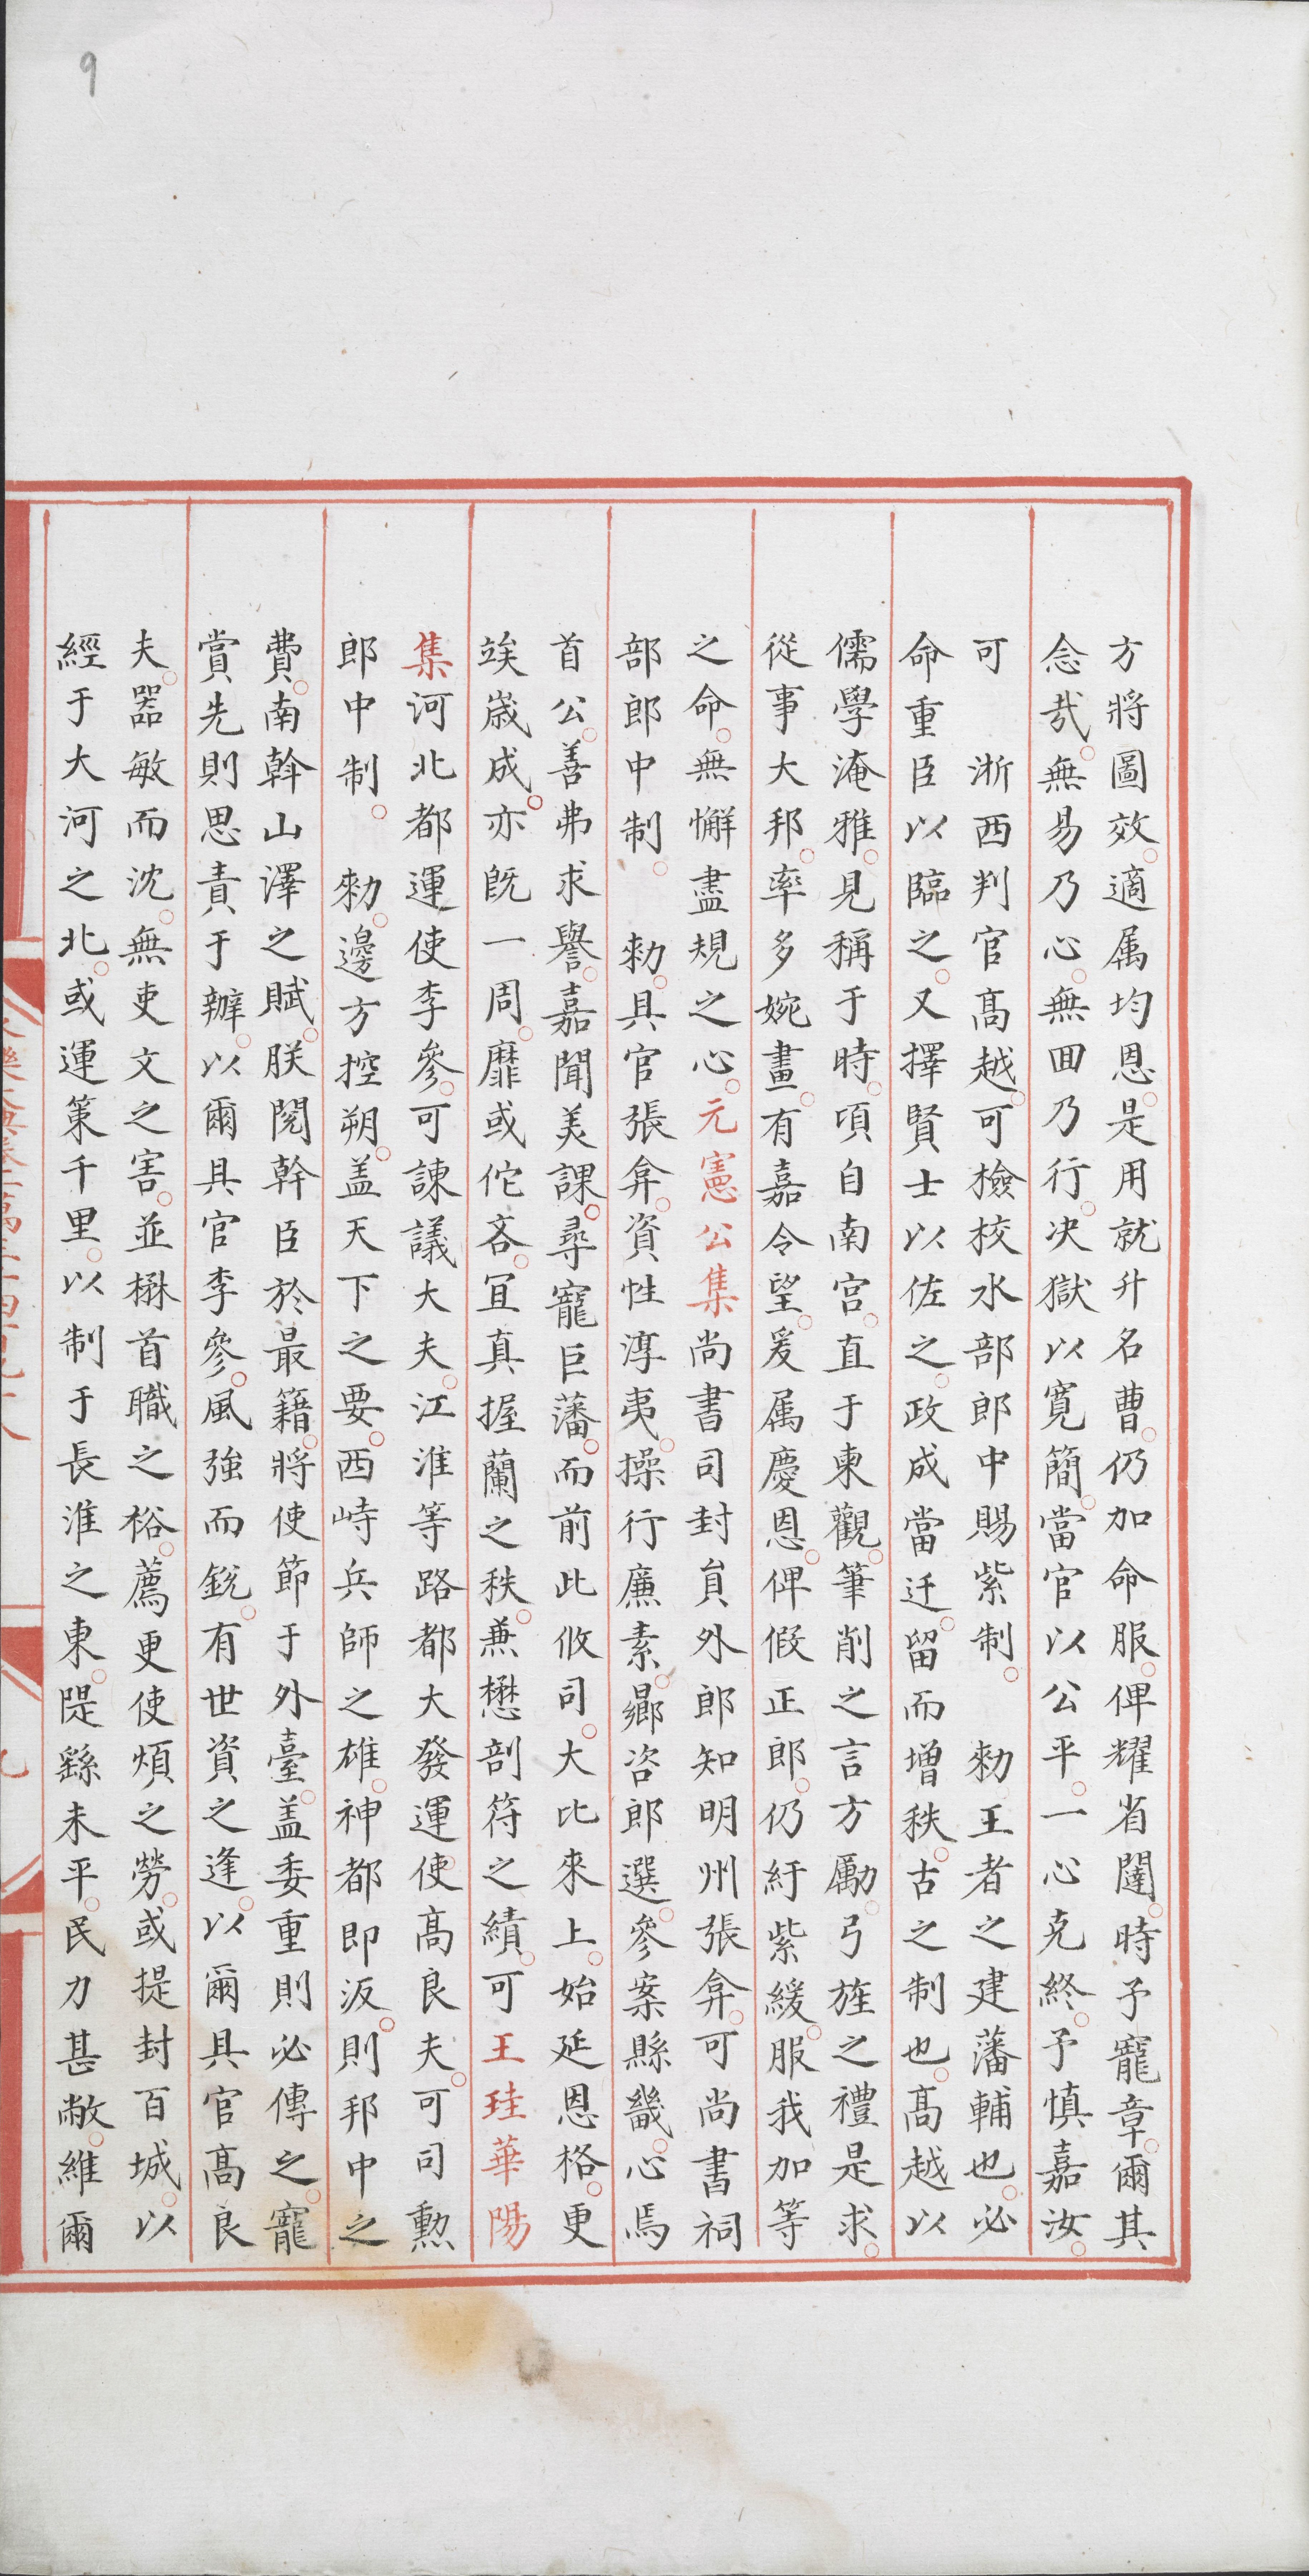 方將圖效適属均恩是用就升名曹仍加命服俾耀省闥時予寵章爾其
念哉無易乃心無回乃行决獄以寛簡當官以公平一心克終予慎嘉汝
可　浙西判官髙越可檢校水部郎中賜紫制　勑王者之建藩輔也必
命重臣以臨之又擇賢士以佐之政成當迁留而增秩古之制也髙越以
儒學淹雅見稱于時頃自南宫直于東觀筆削之言方勵弓旌之禮是求
從事大邦率多婉畫有嘉令望爰属慶恩俾假正郎仍紆紫綬服我加等
之命無懈盡規之心元憲公集尚書司封貟外郎知明州張弇可尚書祠
部郎中制　勑具官張弇資性淳夷操行廉素鄉咨郎選參案縣畿心焉
首公善弗求譽嘉聞美課尋寵巨藩而前此攸司大比來上始延恩格更
竢嵗成亦既一周靡或佗吝冝真握蘭之秩兼懋剖符之績可王珪華陽
集河北都運使李參可諌議大夫江淮等路都大發運使髙良夫可司勲
郎中制　勑邊方控朔盖天下之要西峙兵師之雄神都即汳則邦中之
費南斡山澤之賦朕閲幹臣於最籍將使節于外臺盖委重則必傳之寵
賞先則思責于辦以爾具官李參風強而銳有世資之逢以爾具官髙良
夫器敏而沈無吏文之害並楙首職之裕薦更使煩之勞或提封百城以
經于大河之北或運策千里以制于長淮之東隄繇未平民力甚敝維爾
九
9